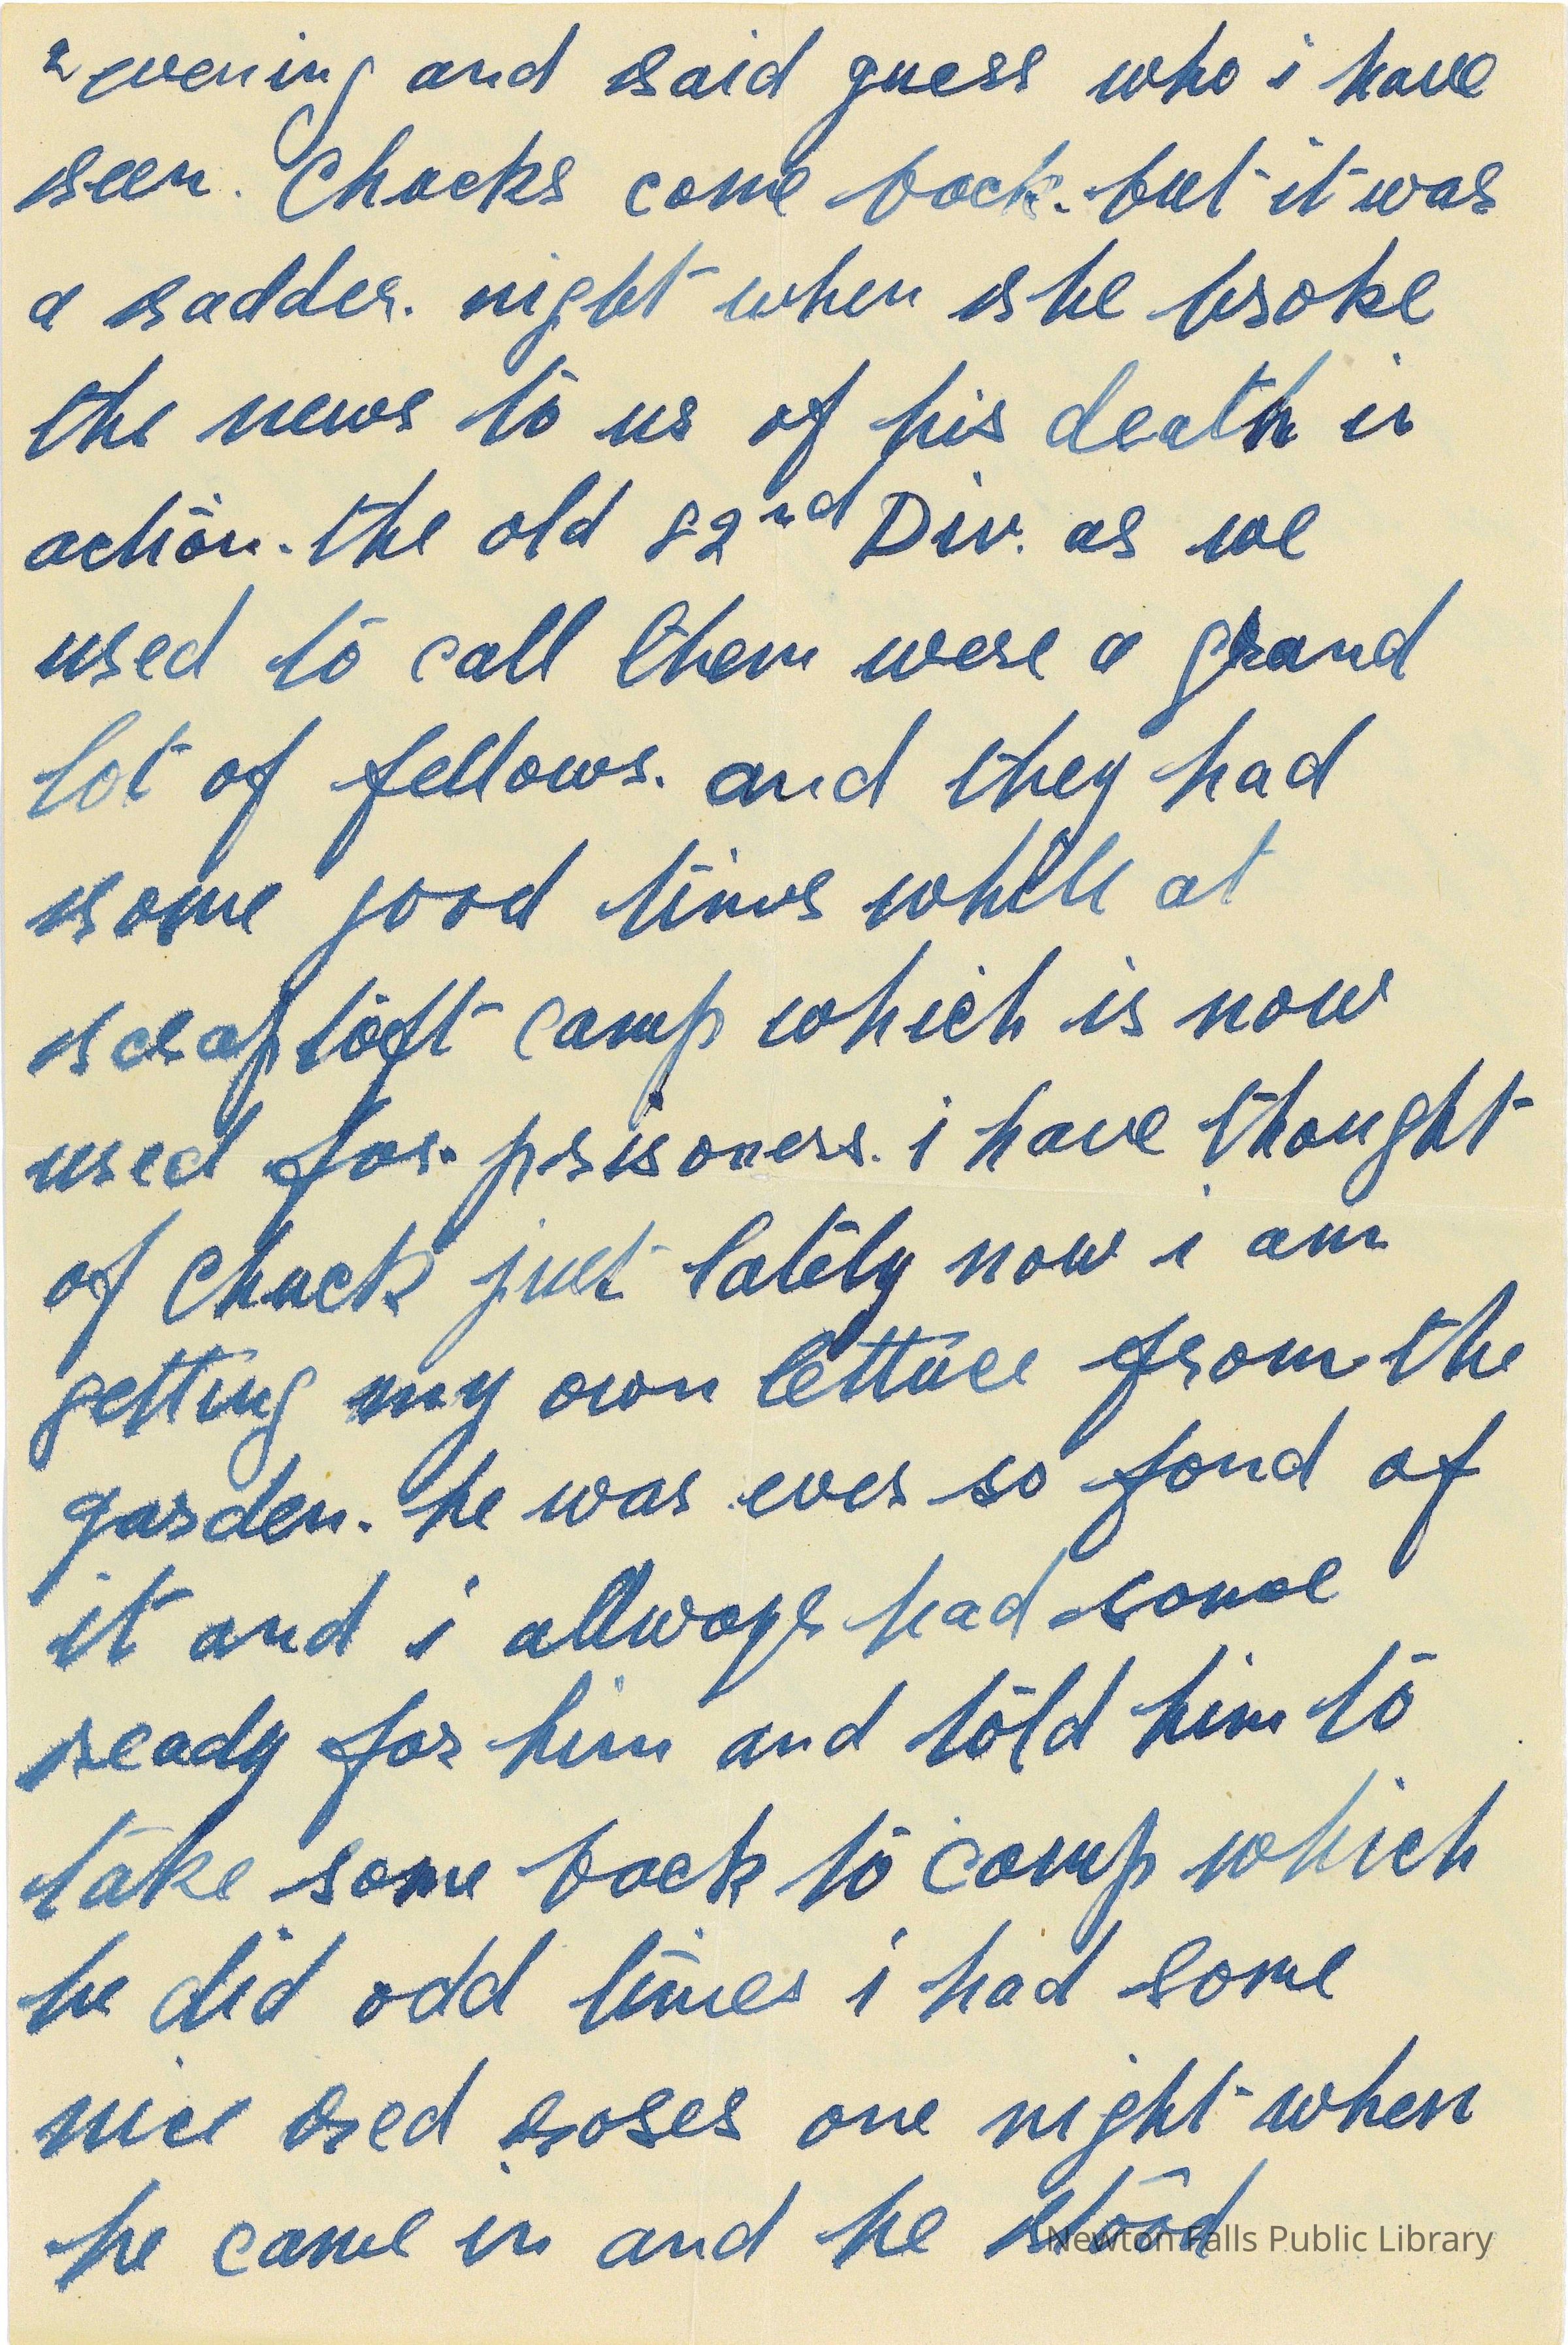 2 evening and said guess who i have
seen. Chucks come back. but it was
a sadder. night when she broke
the news to us of his death in
action. the old 82nd Div. as we
used to call them were a grand
lot of fellows. and they had
some good times while at
scraptoft camp which is now
used for. prisoners. i have thought
of Chuck just lately now i am
getting my own lettuce from the
garden. he was ever so fond of
it and i allways had some
ready for him and told him to
take some back to camp which
he did odd times i had some
nice red roses one night when
he came in and he stood
Newton Falls Public Library